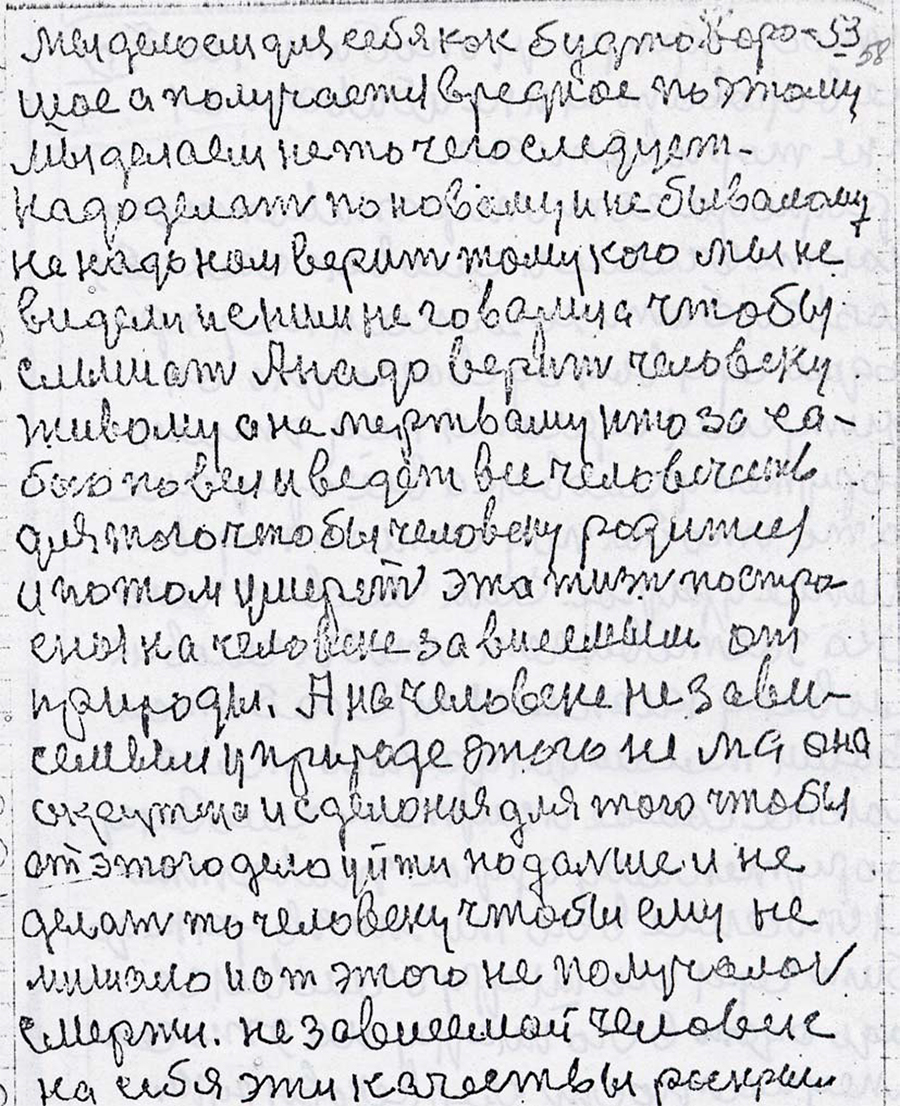 мы делоем для себя как будто хоро- 53 58
шое а получаетя вредное по этому
мы делаем не то чего следует.
надо делат по новаму и не бываламу
не надо нам верит тому кого мы не
видели и с ним не говарили чтобы
слышат А надо верит человеку
живому а не мертваму что за са-
бою повел и ведет все человечеств
для того чтобы человеку родится
и потом умерет эта жизн постра
ена на человеке зависемым от
природы. А на человеке не зави-
семым у природе этого не ма она
и сделоная для того чтобы
от этого дела уйти по далше и не
делат то человеку чтобы ему не
мишало и от этого не получалос
смерти. не зависемой человек
на себя эти качествы раскрыл